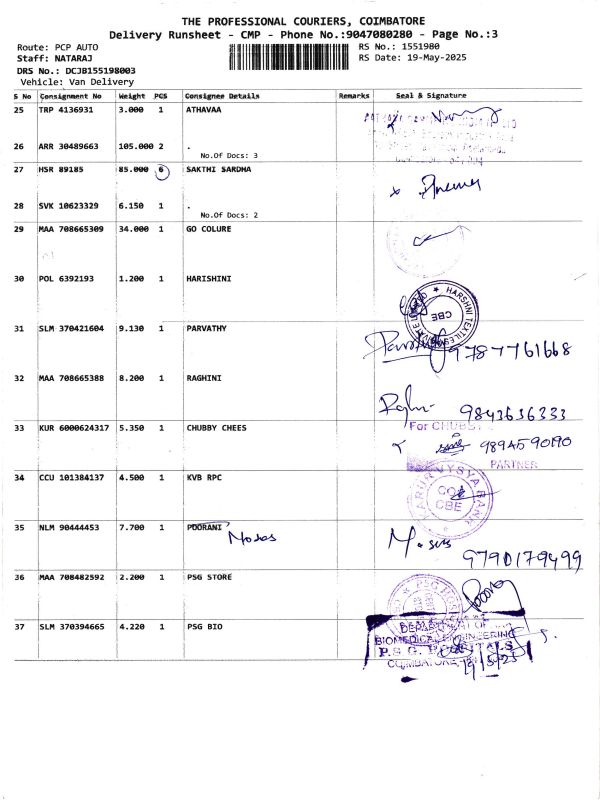 THE PROFESSIONAL COURIERS, COIMBATORE
Delivery Runsheet - CMP - Phone No.:9047080280 - Page No.:3
Route: PCP AUTO
RS No.: 1551980
Staff: NATARAJ
RS Date: 19-May-2025
DRS No.: DCJB155198003
Vehicle: Van Delivery
S No Consignment No Weight PCS Consignee Details Remarks Seal & Signature
25 TRP 4136931 3.000 1 ATHAVAA
26 ARR 30489663 105.000 2 .
No.Of Docs: 3
27 HSR 89185 85.000 6 SAKTHI SARDHA
28 SVK 10623329 6.150 1 .
No.Of Docs: 2
29 MAA 708665309 34.000 1 GO COLURE
30 POL 6392193 1.200 1 HARISHINI
HARSHNI TEXTILES
CBE
31 SLM 370421604 9.130 1 PARVATHY
9787761668
32 MAA 708665388 8.200 1 RAGHINI
9843636333
33 KUR 6000624317 5.350 1 CHUBBY CHEES
For CHUBBY
9894590190
PARTNER
34 CCU 101384137 4.500 1 KVB RPC
KARUR VYSYA BANK
CBE
35 NLM 90444453 7.700 1 POORANI
Moses
Moses
9790179499
36 MAA 708482592 2.200 1 PSG STORE
37 SLM 370394665 4.220 1 PSG BIO
DEPARTMENT OF
BIOMEDICAL ENGINEERING
P.S.G. HOSPITALS
COIMBATORE
19/5/25